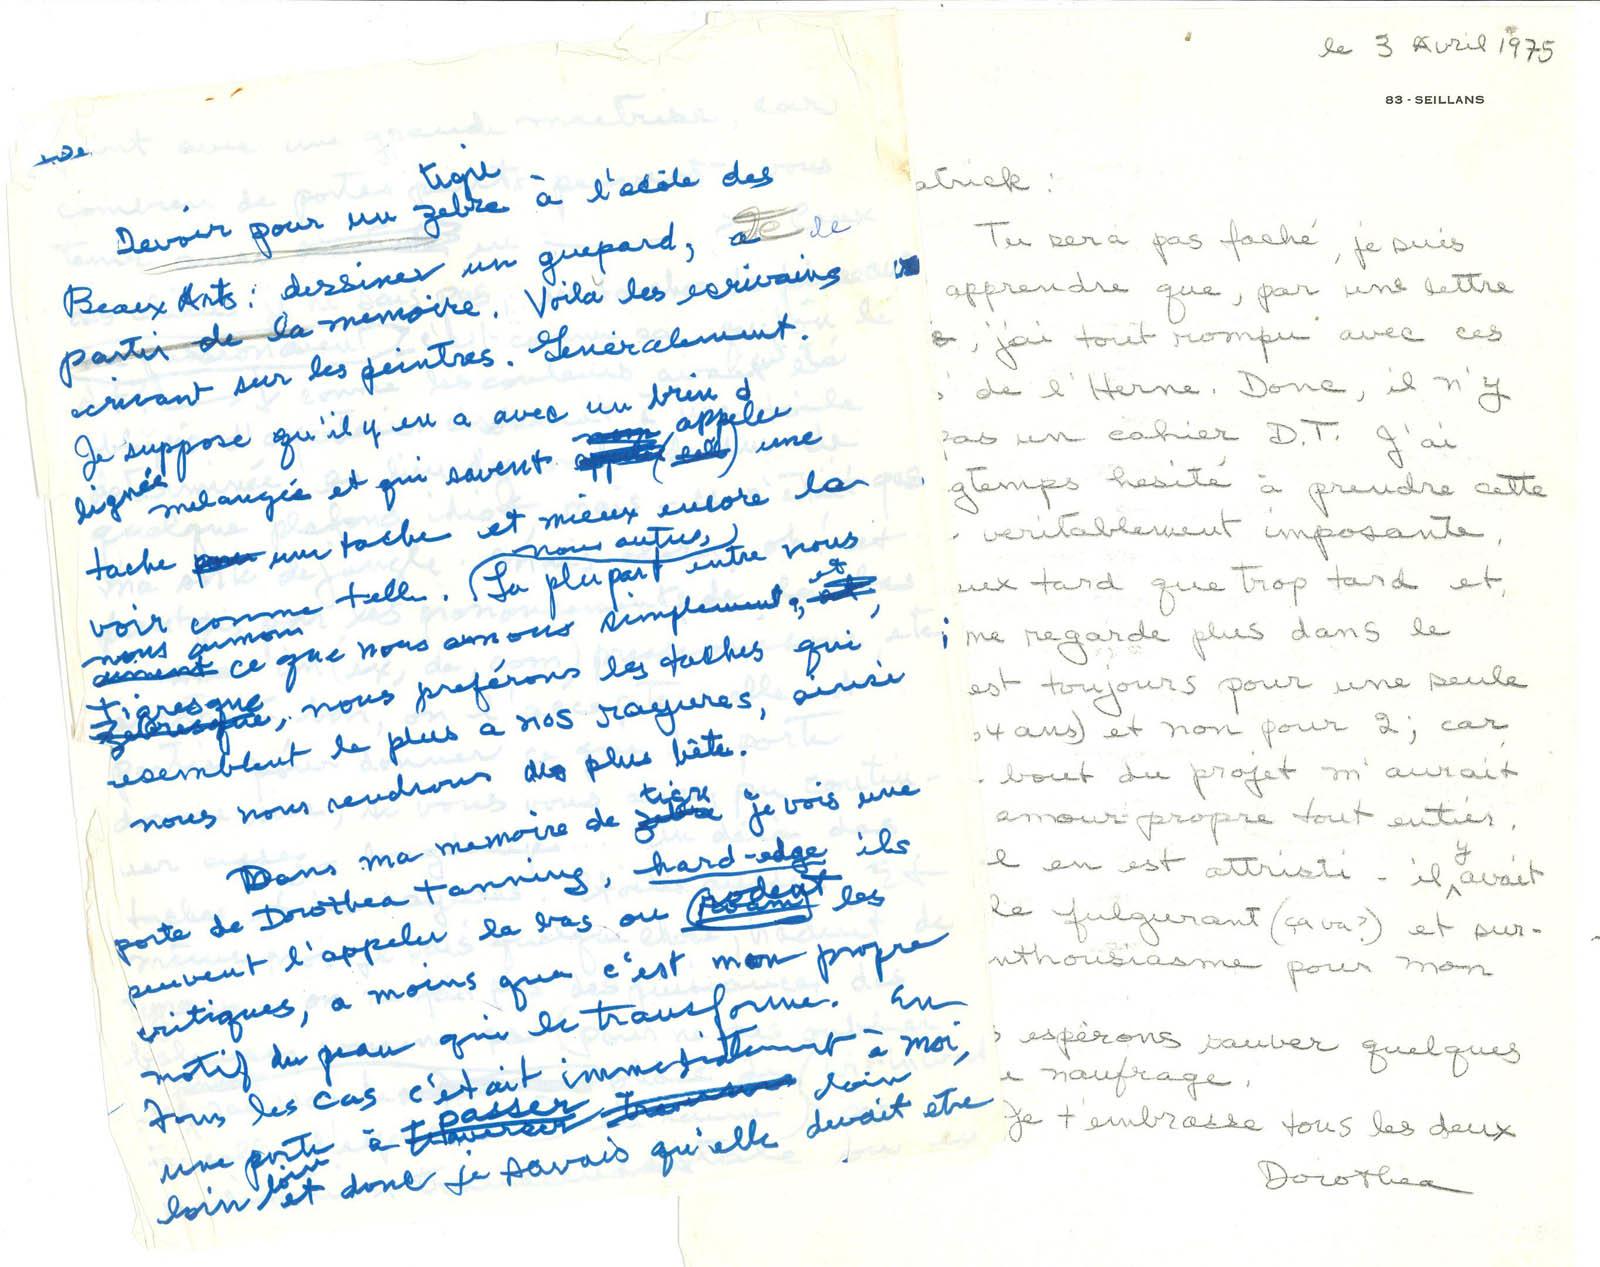 Devoir pour un zèbre tigre à l'école des
Beaux Arts: dessiner un guepard, a le
partir de la memoire. Voilà les ecrivains
ecrivant sur les peintres. Généralement.
Je suppose qu'il y en a avec un brin d
lignée melangée et qui savent appeler une
tache une tache et mieux encore la
voir comme telle. (La plupart entre nous
nous autres)
nous aimons
aiment ce que nous sommes simplement, et
tigresque
zebresque, nous preférons les taches qui
resemblent le plus a nos rayures, ainsi
nous nous rendrons des plus bête.
Dans ma memoire de zebre tigre je vois une
porte de Dorothea Tanning, hard-edge ils
peuvent l'appeler la bas ou rodent les
critiques, a moins que c'est mon propre
motif du peau qui le transforme. En
tous les cas c'était immediatement à moi,
une porte à traverser passer loin
loin loin et donc je savais qu'elle devait etre
le 3 Avril 1975
83 - SEILLANS
atrick:
Tu sera pas faché, je suis
apprendre que, par une lettre
, j'ai tout rompu avec ces
de l'Herne. Donc, il n'y
pas un cahier D.T. J'ai
gtemps hesité à prendre cette
veritablement imposante,
eux tard que trop tard et,
me regarde plus dans le
est toujours pour une seule
4 ans) et non pour 2; car
bout du projet m'aurait
amour propre tout entier.
l en est attristé - il y avait
le fulgurant (ça va?) et sur-
nthousiasme pour mon
espérons sauver quelques
naufrage.
Je t'embrasse tous les deux
Dorothea